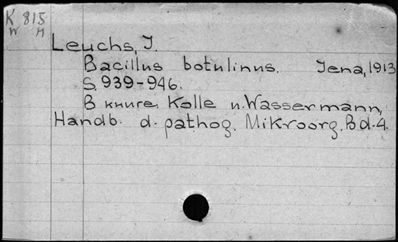 K 815
W H
Leuchs, J.
Bacillus botulinus. Jena, 1913
S. 939-946.
В книге: Kolle u. Wassermann,
Handb. d. pathog. Mikroorg. Bd. 4.